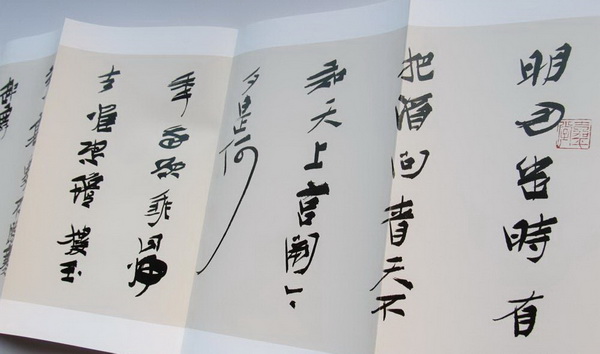 明月幾時有
把酒問青天不
知天上宮闕今
夕是何
年我欲乘風歸
去惟恐瓊樓玉